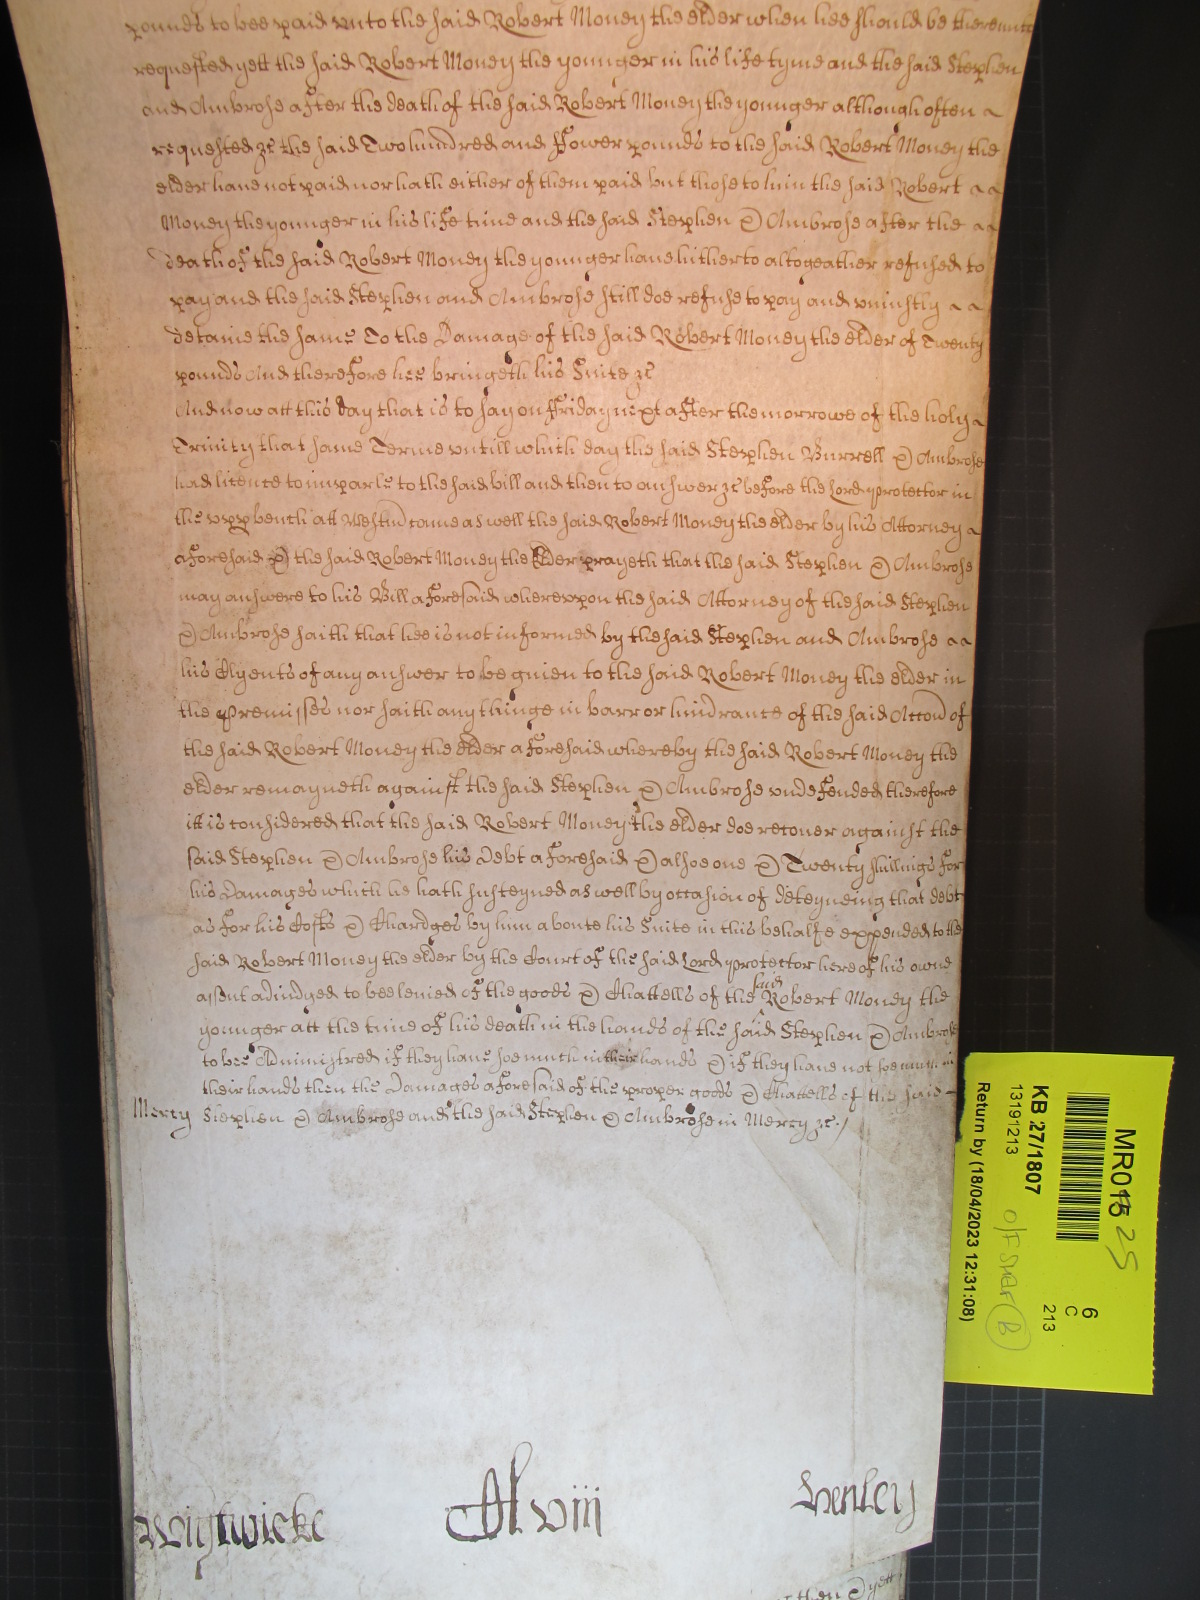 pounds to bee paid vnto the said Robert Money the elder when hee should be therevnto
requested yett the said Robert Money the younger in his life tyme and the said Stephen
and Ambrose after the death of the said Robert Money the younger although often
requested &c the said Two hundred and ffower pounds to the said Robert Money the
elder haue not paid nor hath either of them paid but those to him the said Robert
Money the younger in his life time and the said Stephen & Ambrose after the
death of the said Robert Money the younger haue hitherto altogeather refused to
pay and the said Stephen and Ambrose still doe refuse to pay and vniustly
detaine the same To the Damage of the said Robert Money the elder of Twenty
pounds And therefore hee bringeth his Suite &c
And now att this day that is to say on ffriday next after the morrowe of the holy
Trinity that same Terme vntill which day the said Stephen Burrell & Ambrose
had licence to imparle to the said bill and then to answer &c before the Lord protector in
the vpp bench att Westm came as well the said Robert Money the elder by his Attorney
aforesaid & the said Robert Money the Elder prayeth that the said Stephen & Ambrose
may answere to his Bill aforesaid wherevpon the said Attorney of the said Stephen
& Ambrose saith that hee is not informed by the said Stephen and Ambrose
his Clyents of any answer to be giuen to the said Robert Money the elder in
the premisses nor saith any thinge in barr or hindrance of the said Accon of
the said Robert Money the elder aforesaid whereby the said Robert Money the
elder remayneth against the said Stephen & Ambrose vndefended therefore
itt is considered that the said Robert Money the elder doe recouer against the
said Stephen & Ambrose his Debt aforesaid & alsoe one & Twenty shillings for
his Damages which he hath susteyned as well by occasion of deteyneing that debt
as for his Costs & Chardges by him aboute his Suite in this behalfe expended to the
said Robert Money the elder by the Court of the said Lord protector here of his owne
assent adiudged to bee levied of the goods & Chattells of the said Robert Money the
younger att the time of his death in the hands of the said Stephen & Ambrose
to bee Administred if they haue soe much in their hands & if they haue not soe much in
their hands then the Damages aforesaid of the proper goods & Chattells of the said
Mercy Stephen & Ambrose and the said Stephen & Ambrose in Mercy &c
Wightwicke Clviii Henley
MR01525
6
C
213
KB 27/1807
13191213
Return by (18/04/2023 12:31:08)
B